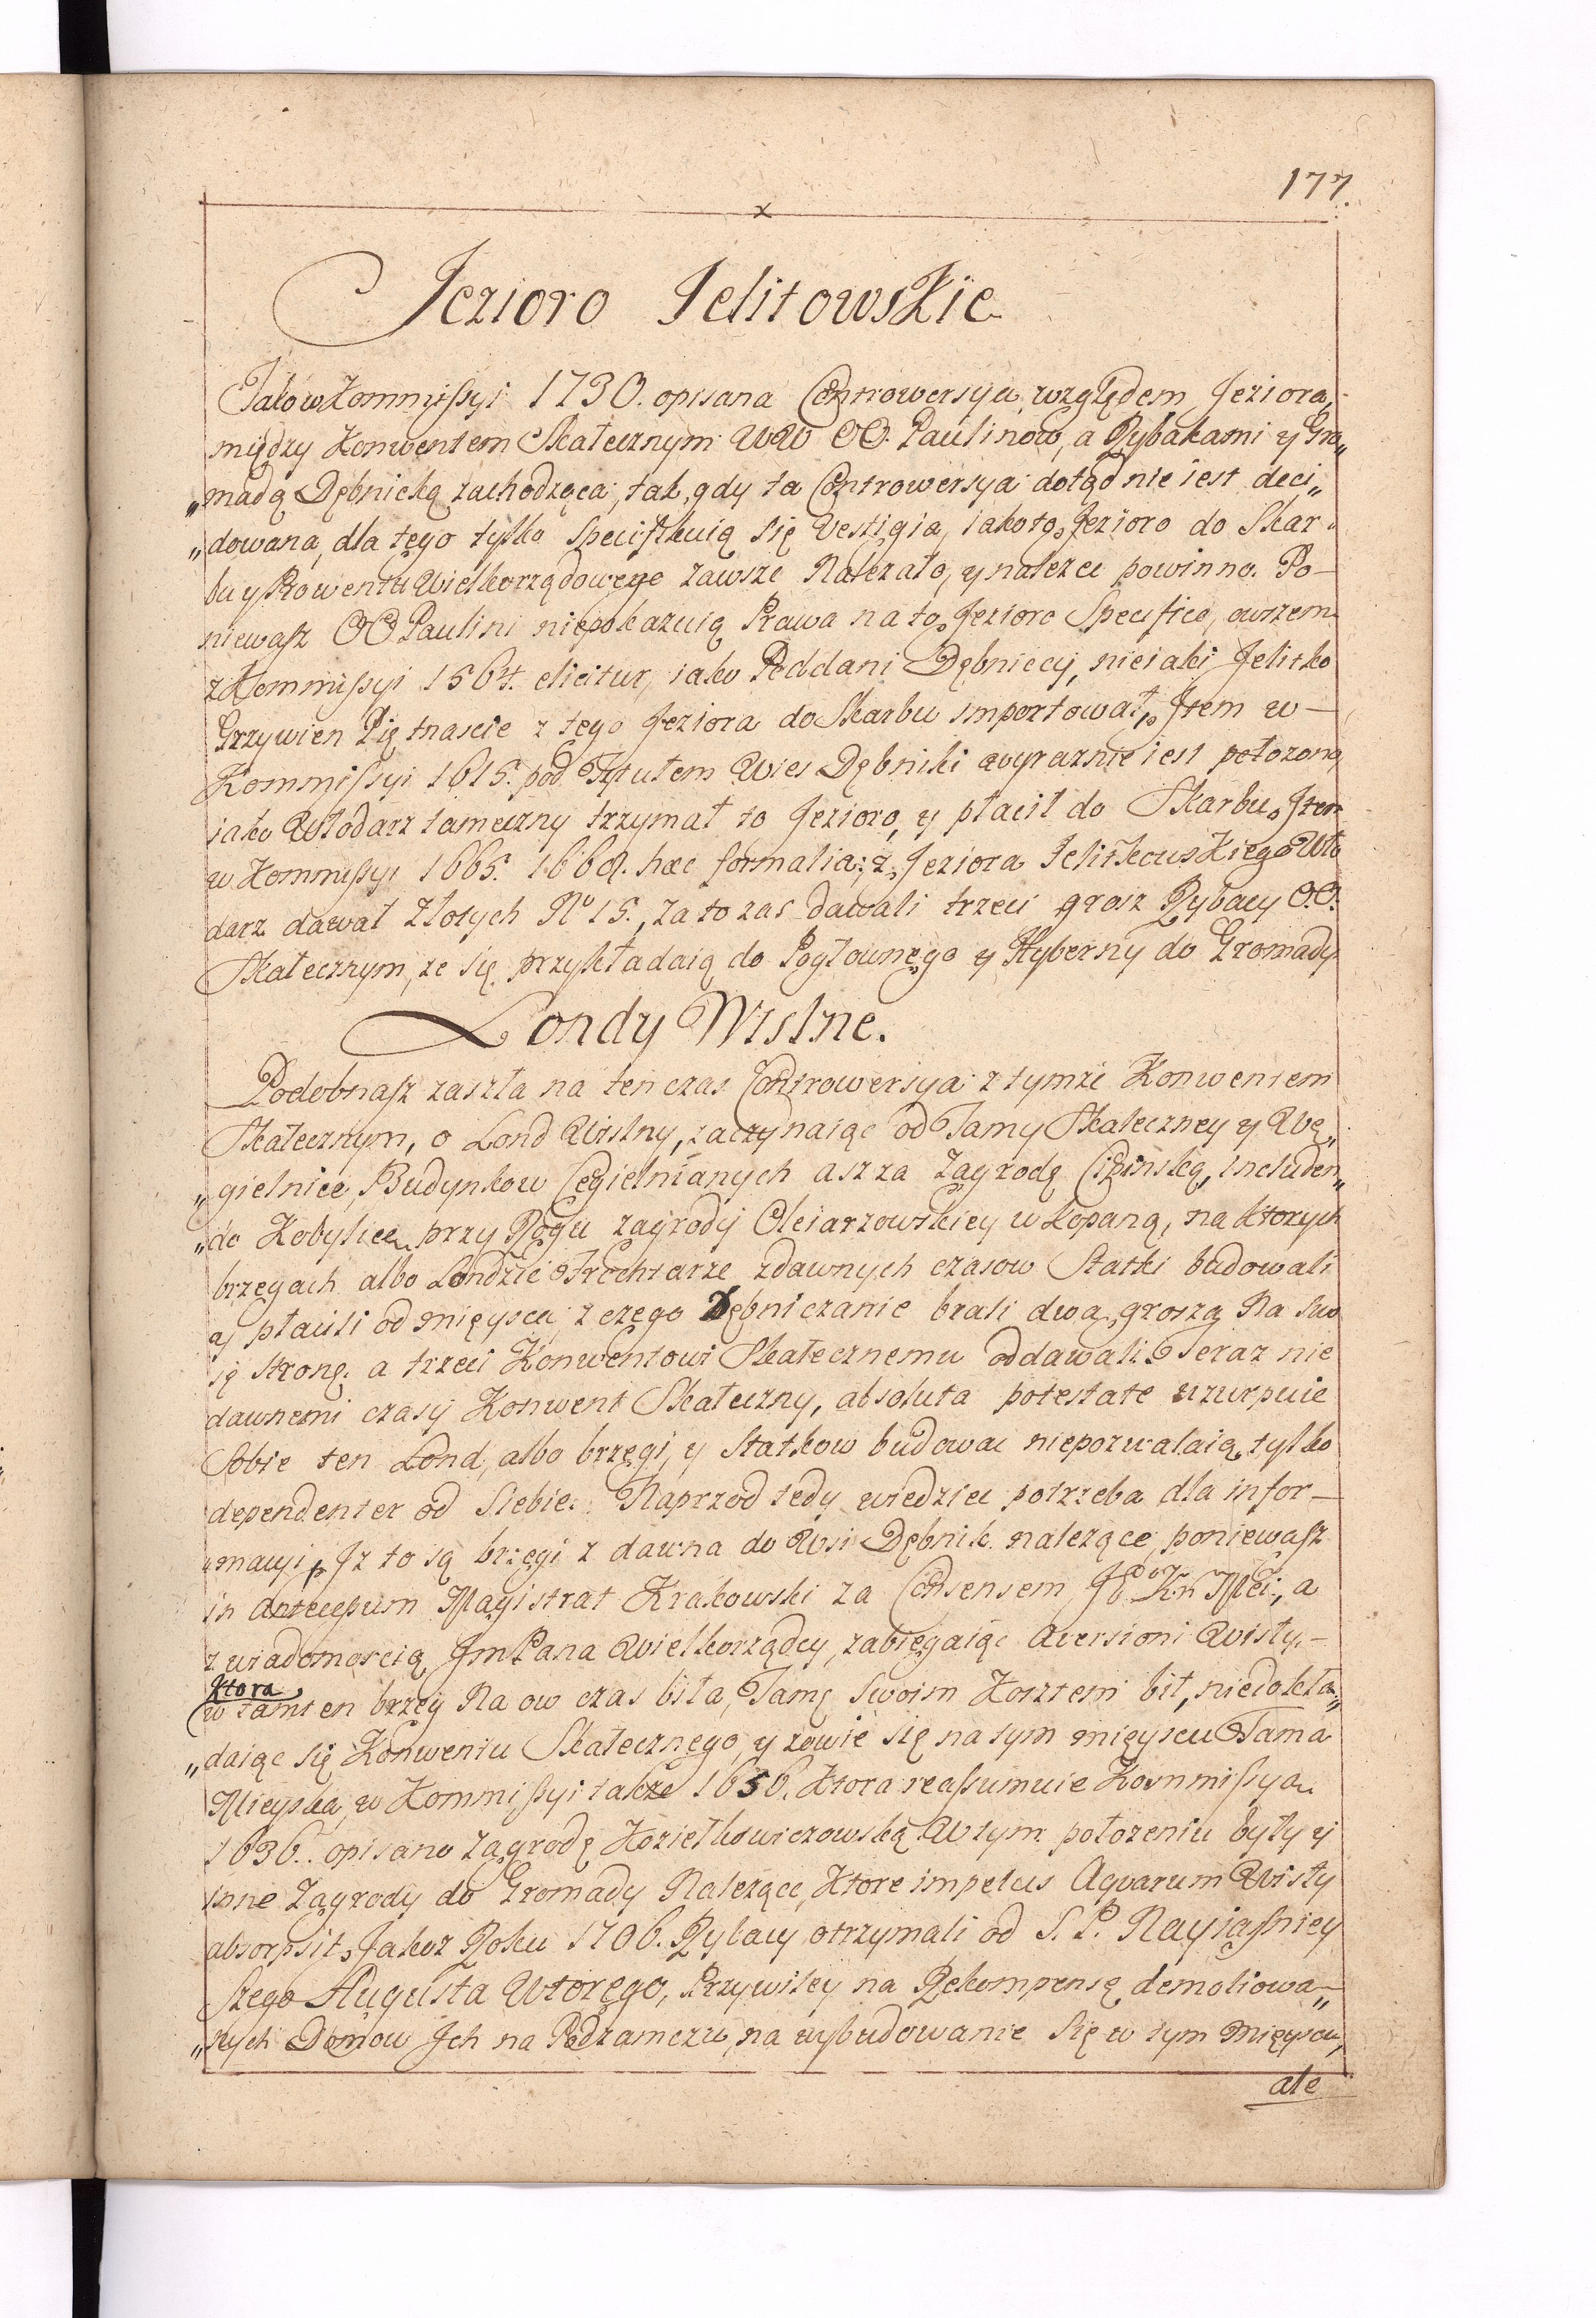 177.
x
Jezioro Jelitowskie
Jako w Kommissyi 1730. opisana Controwersya, względem Jeziora,
między Konwentem Skałecznym WW OO. Paulinow, a Rybakami y Gro„
„madą Dębnicką zachodząca, tak, gdy ta Controwersya dotąd nie iest deci„
„dowana, dla tego tylko Specifikuią się Vestigia, iako to, Jezioro do Skar„
bu y Prowentu Wielkorządowego zawsze Nalezało, y nalezec powinno. Po-
niewasz OO Paulini niepokazuią Prawa na to Jezioro Specifice, owszem
z Kommissyi 1564. elicitur, iako Poddani Dębniccy, nieiaki Jelitko
Grzywien Piętnascie z tego Jeziora do Skarbu importował, Item w-
Kommissyi 1615. pod Tytułem Wies Dębniki wyraznie iest połozono
iako Włodarz tameczny trzymał to Jezioro, y płacił do Skarbu. Item
w Kommissyi 1665. 1668. hæc formalia; z Jeziora Jelitkowskiego Wło
darz dawał Złotych No 15., za to zas dawali trzeci grosz Rybacy OO.
Skałecznym, ze się przykładaią do Pogłownego y Hyberny do Gromady
Londy Wislne.
Podobnasz zaszła na ten czas Controwersya z tymze Konwentem
Skałecznym, o Lond Wislny, zaczynaiąc od Tamy Skałeczney y Wę„
„gielnice, Budynkow Cegielnianych asz za Zagrodę Cipinską, includen„
„do Kobylice przy Rogu zagrody Oleiarzowskiey wkopaną, na ktorych
brzegach albo Londzie Frochtarze zdawnych czasow Statki budowali
y płacili od mieysca, z czego Dębniczanie brali dwa grosza Na swo
ię stronę. a trzeci Konwentowi Skałecznemu oddawali. Teraz nie
dawnemi czasy Konwent Skałeczny, absoluta potestate uzurpuie
Sobie ten Lond, albo brzegi, y Statkow budowac niepozwalaią, tylko
dependenter od Siebie. Naprzod tedy wiedziec potrzeba dla infor-
„macyi, Iz to są brzegi z dawna do Wsi Dębnik nalezące, poniewasz
in antecepum Magistrat Krakowski za Consensem J. O. Kr. Mci, a
z wiadomoscią Jm Pana Wielkorządcy, zabiegaiąc Aversioni Wisły,-
ktora
w tamten brzeg Na ow czas biła, Tamę Swoim Kosztem bił, niedokła„
„daiąc się Konwentu Skałecznego, y zowie się na tym mieyscu Tama
Mieyska, w Kommissyi takze 1656. ktora reassumuie Kommissya
1636. opisano Zagrodę Koziełkowiczowską W tym połozeniu były y
inne Zagrody do Gromady Nalezące, Ktore impetus Aquarum Wisły
absorpsit, Jakoz Roku 1706. Rybacy otrzymali od S. P. Nayiasniey
Szego Augusta Wtorego, Przywiley na Rekompensę demoliowa„
„nych Domow Ich na Podzamczu, na wybudowanie Się w tym Mieyscu,
ale